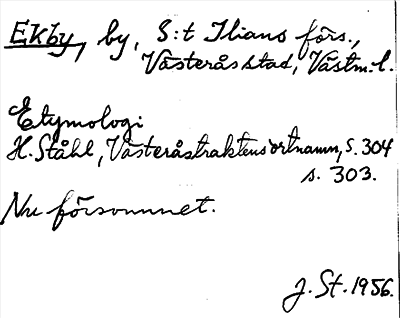 Ekby, by, S:t Ilians förs.,
Västerås stad, Västm. l.
Etymologi
H. Ståhl, Västeråstraktens ortnamn, s. 304
s. 303.
Nu försvunnet.
J. St. 1956.